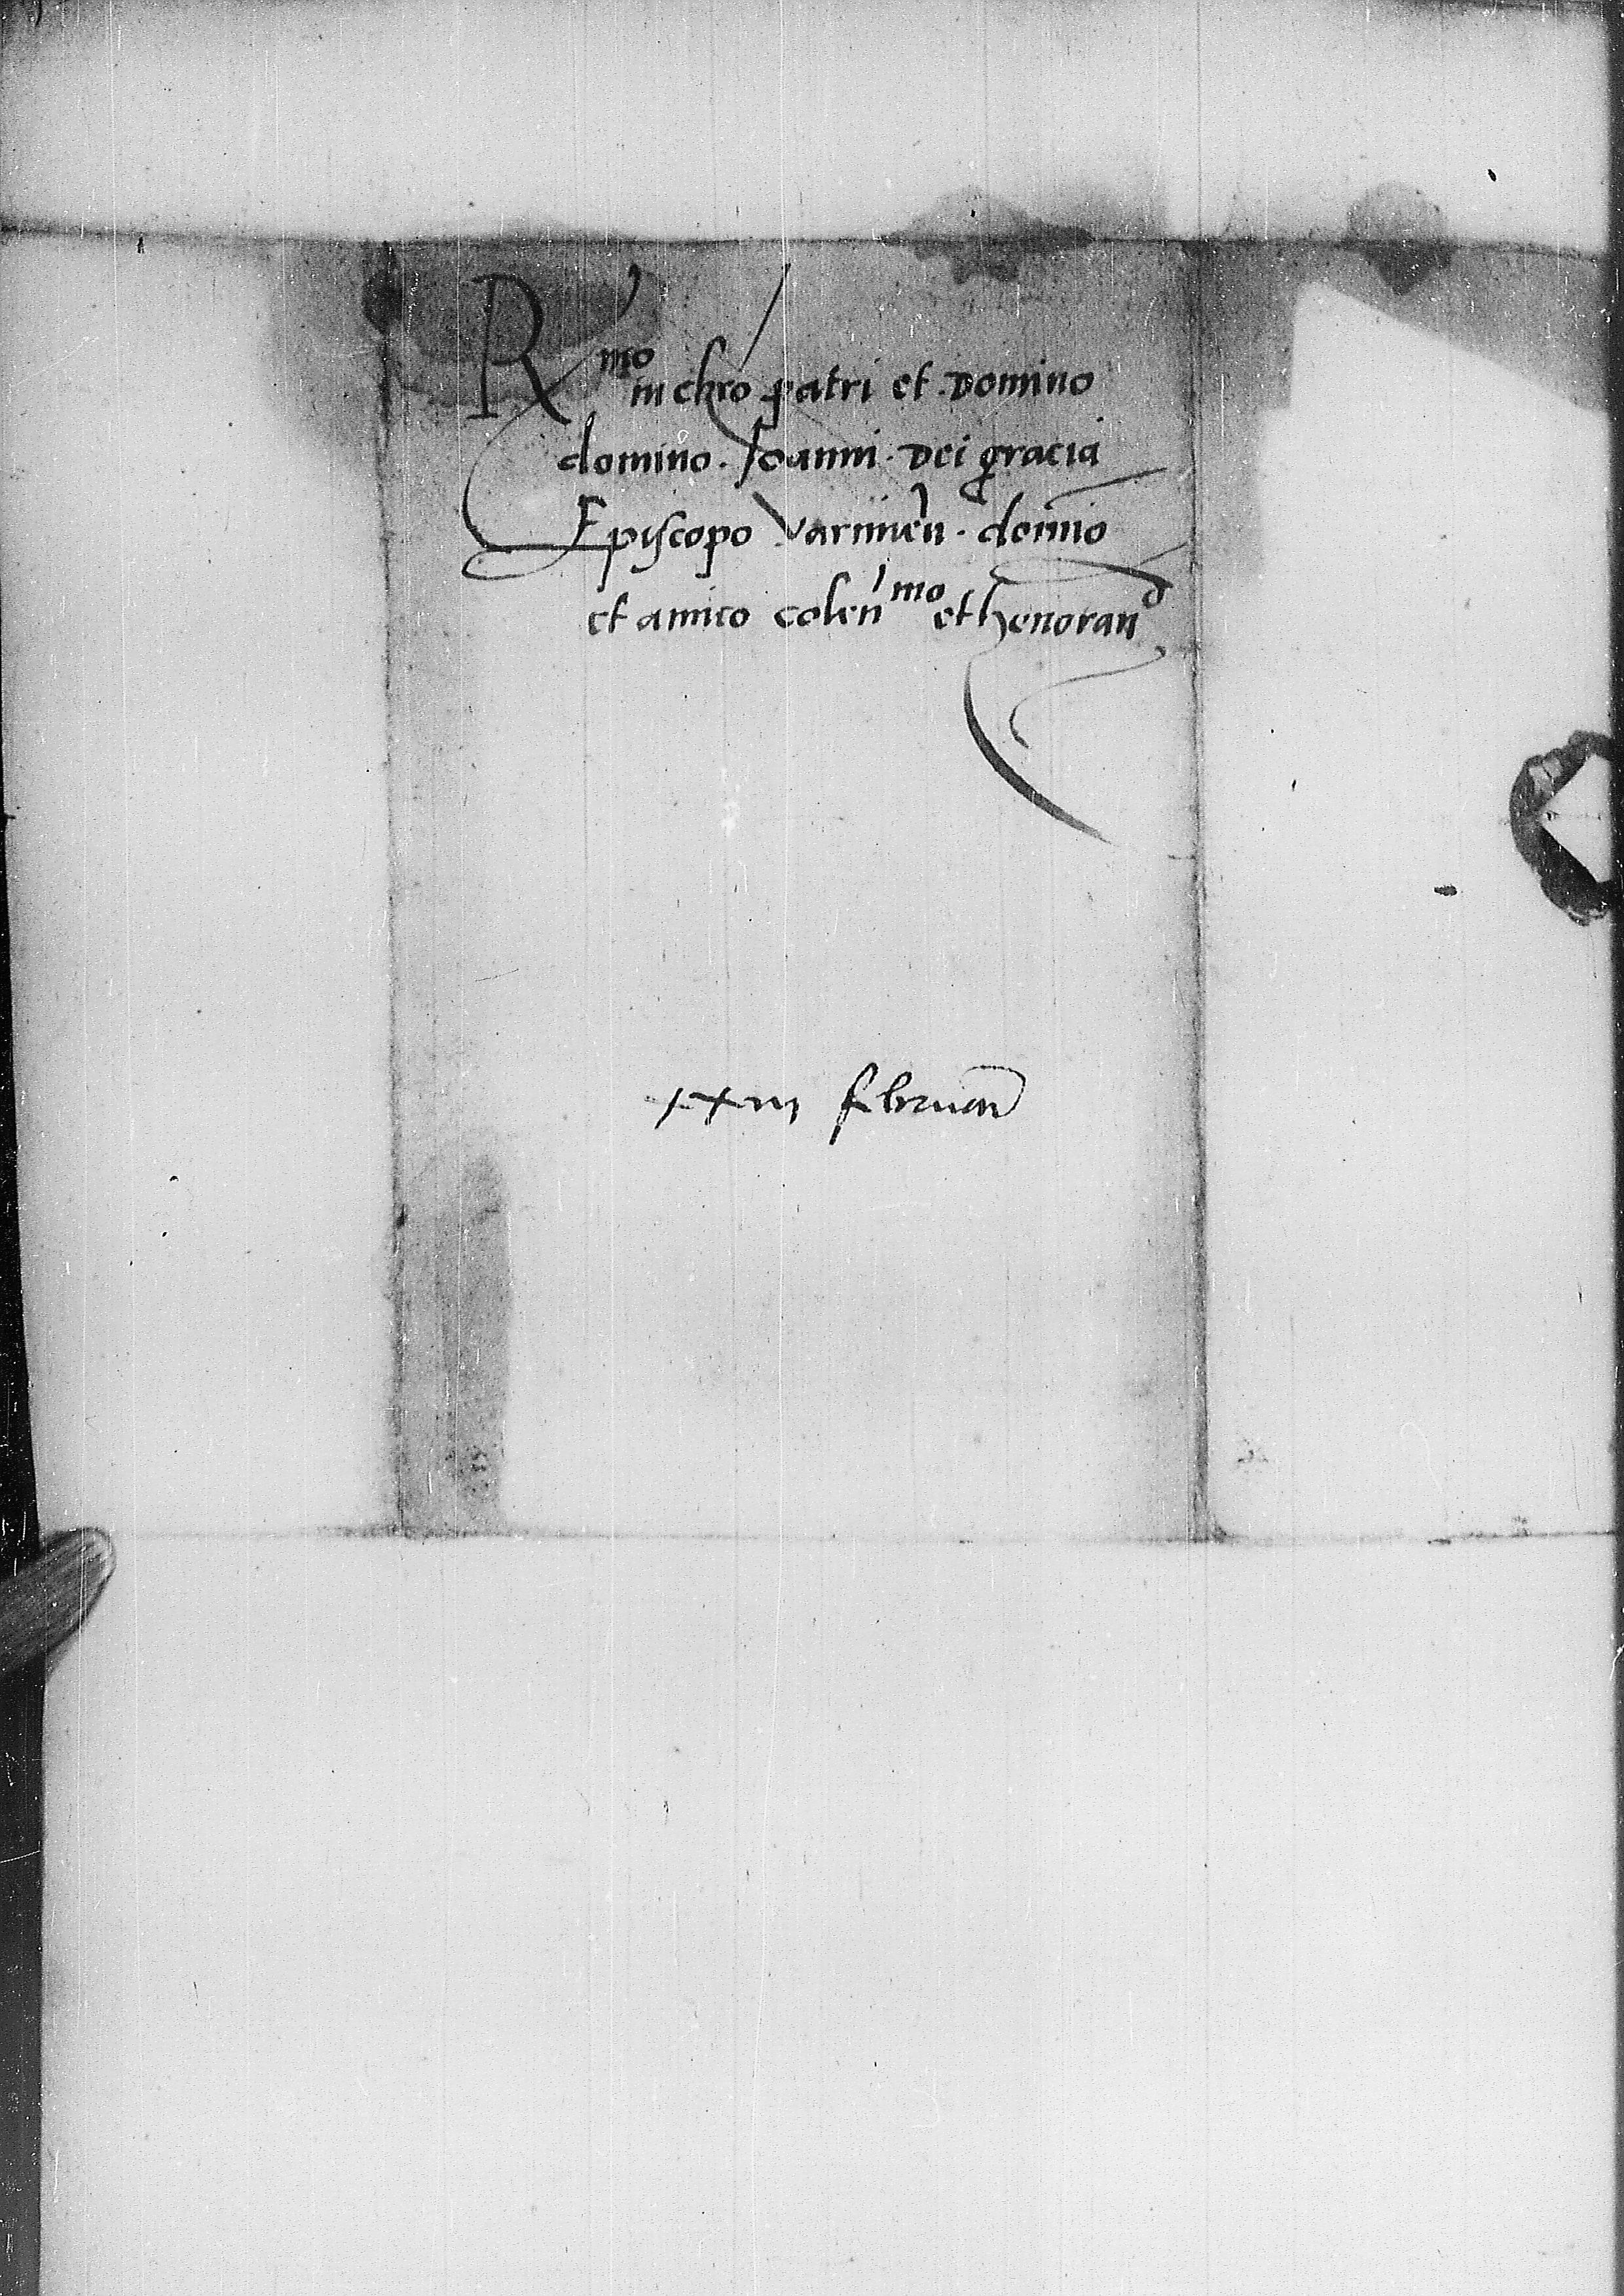 Rmo in chro patri et domino
domino. Joanni. dei gracia
Episcopo Varmien. domino
et amico colenmo et honorand
xxiii februarii